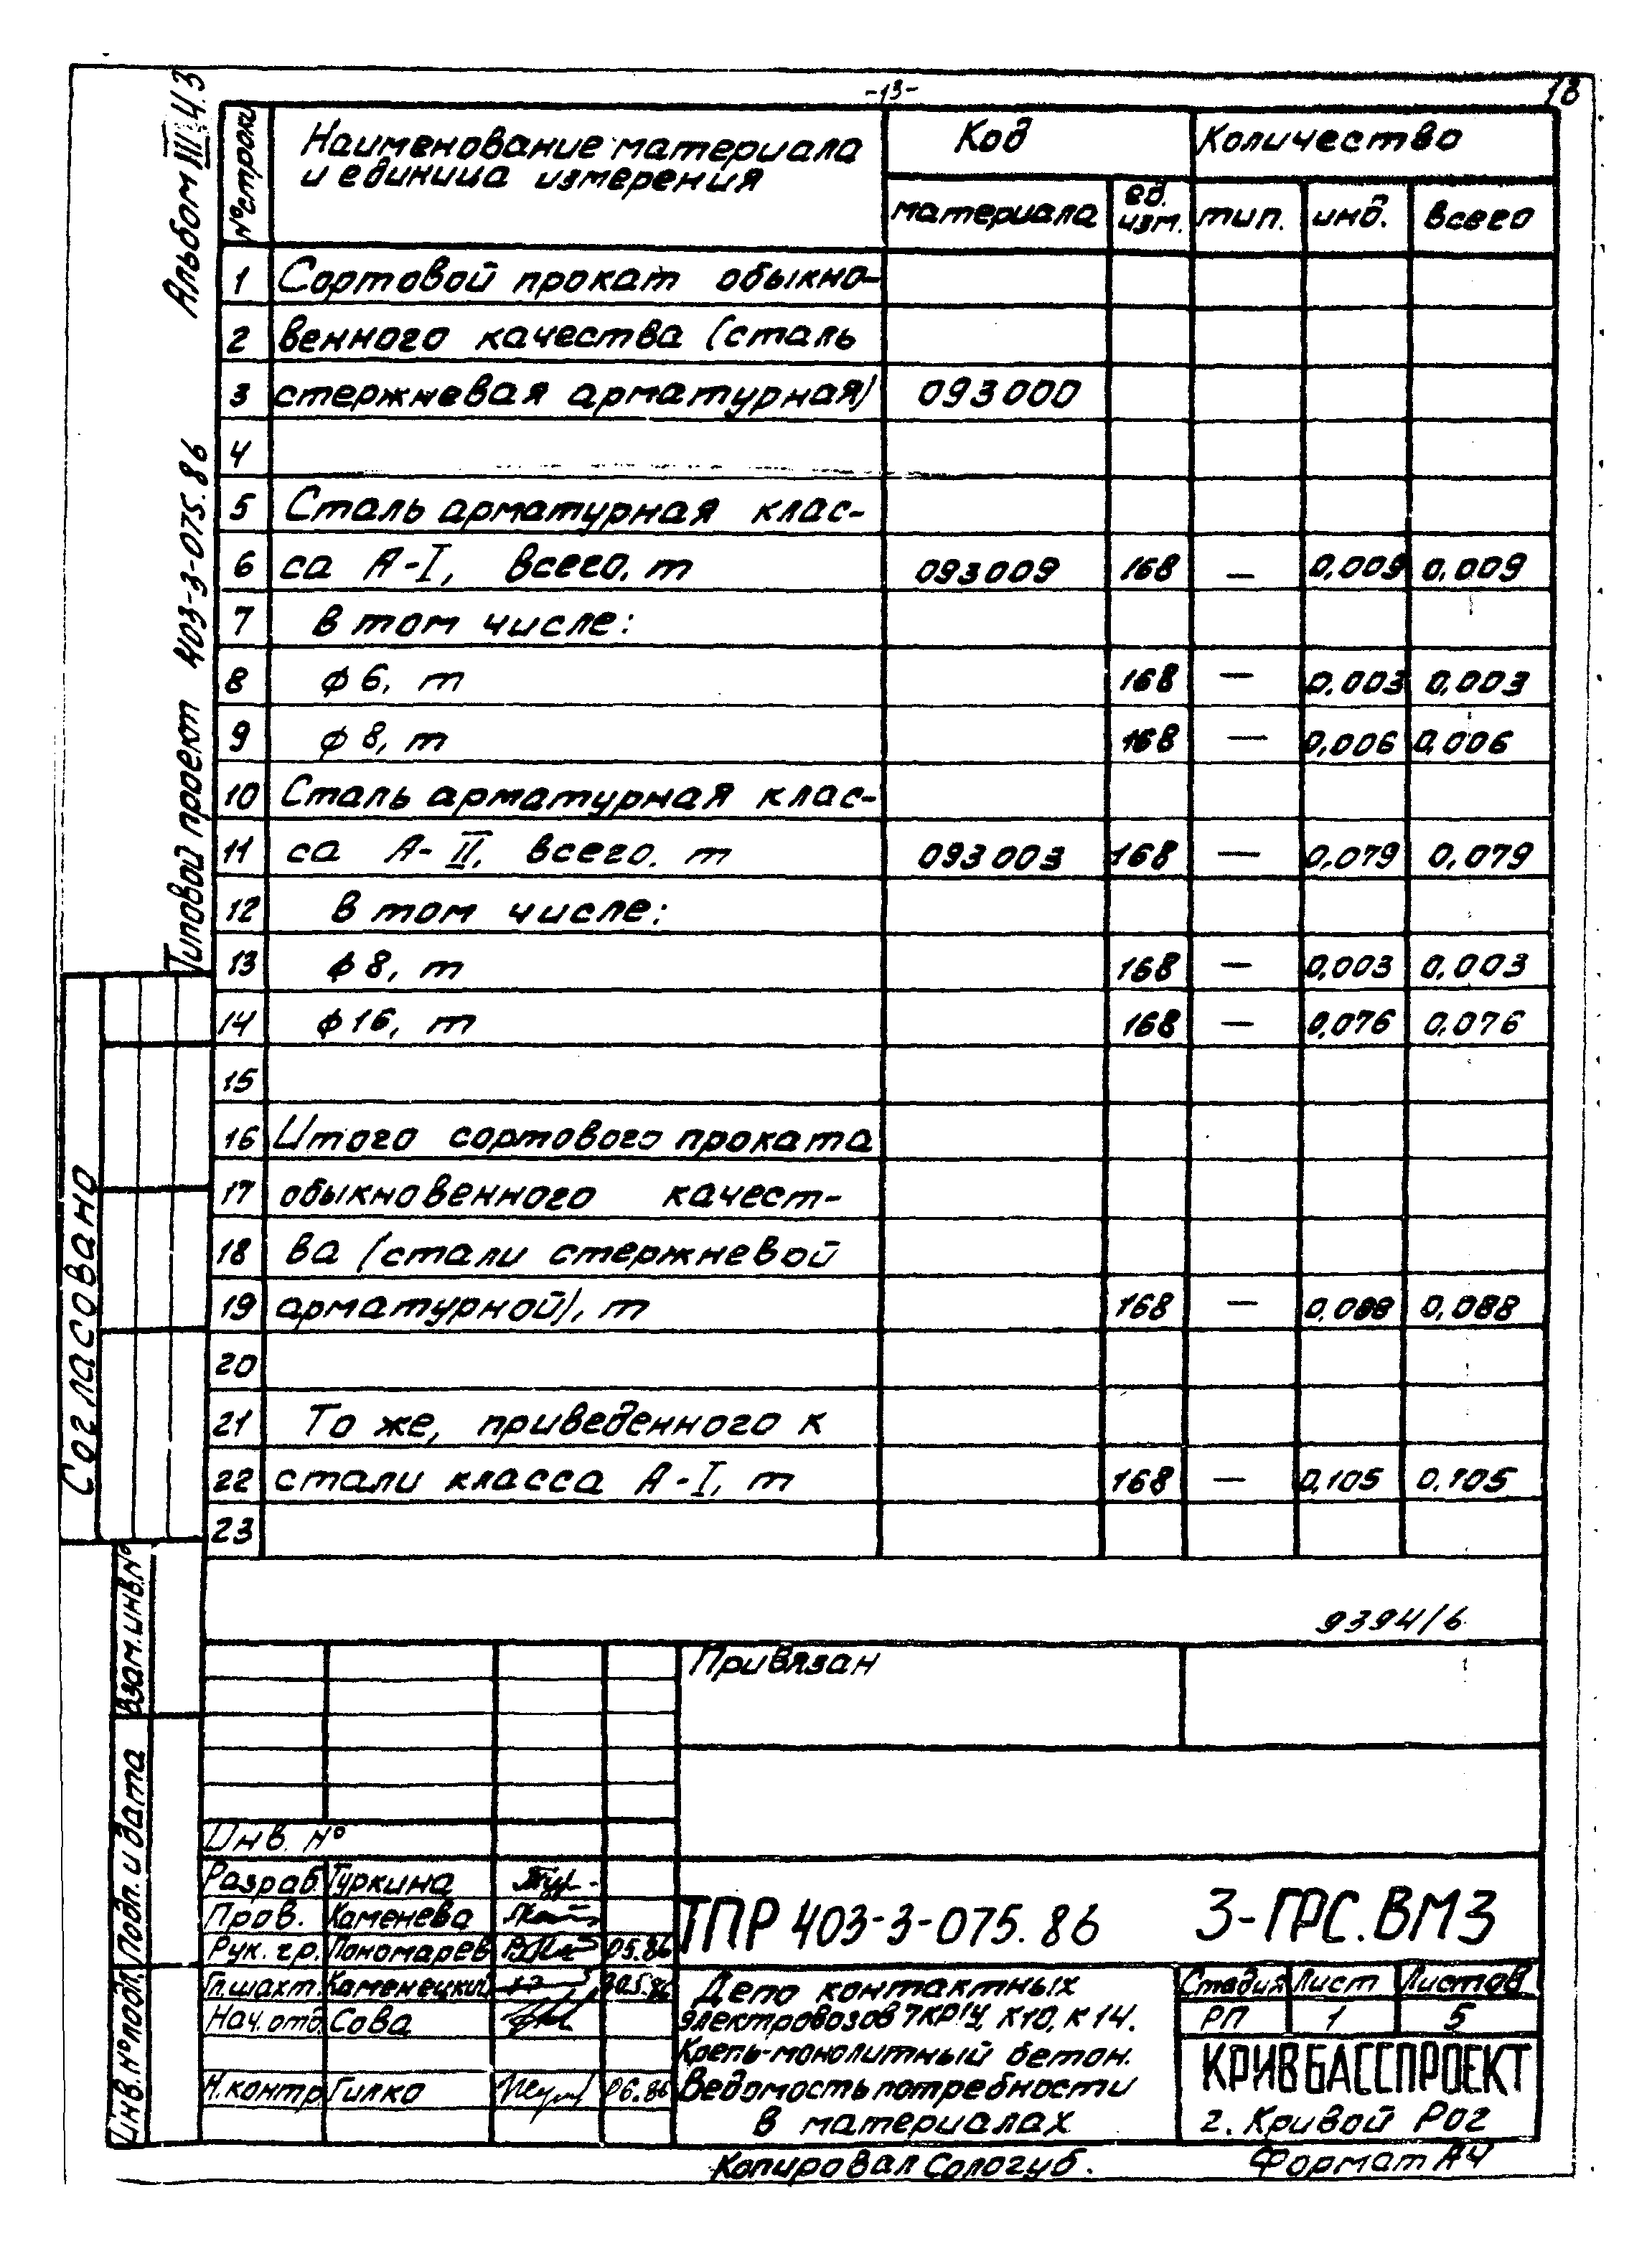 -13-
18
Альбом III Ч.3
Типовой проект 403-3-075.86
№ строки
Наименование материала
и единица измерения
Код
Количество
материала
ед. изм.
тип.
инд.
всего
1 Сортовой прокат обыкно-
2 венного качества (сталь
3 стержневая арматурная) 093000
4
5 Сталь арматурная клас-
6 са А-I, всего, т 093009 168 — 0,009 0,009
7 в том числе:
8 ф 6, т 168 — 0,003 0,003
9 ф 8, т 168 — 0,006 0,006
10 Сталь арматурная клас-
11 са А-II, всего, т 093003 168 — 0,079 0,079
12 в том числе:
13 ф 8, т 168 — 0,003 0,003
14 ф 16, т 168 — 0,076 0,076
15
16 Итого сортового проката
17 обыкновенного качест-
18 ва (стали стержневой
19 арматурной), т 168 — 0,088 0,088
20
21 То же, приведенного к
22 стали класса А-I, т 168 — 0,105 0,105
23
Согласовано
Взам.инв.№
Подп. и дата
Инв.№ подл.
9394/6
Привязан
Инв. №
Разраб. Туркина
Пров. Каменева
Рук. гр. Пономарев 05.86
Гл.шахт. Каменецкий 05.86
Нач. отд. Сова
Н.контр. Гилко 06.86
ТПР 403-3-075.86 3-ГРС.ВМ3
Депо контактных
электровозов 7КР1У, К10, К14.
Крепь-монолитный бетон.
Ведомость потребности
в материалах
Стадия Лист Листов
РП 1 5
КРИВБАССПРОЕКТ
г. Кривой Рог
Копировал Сологуб.
Формат А4